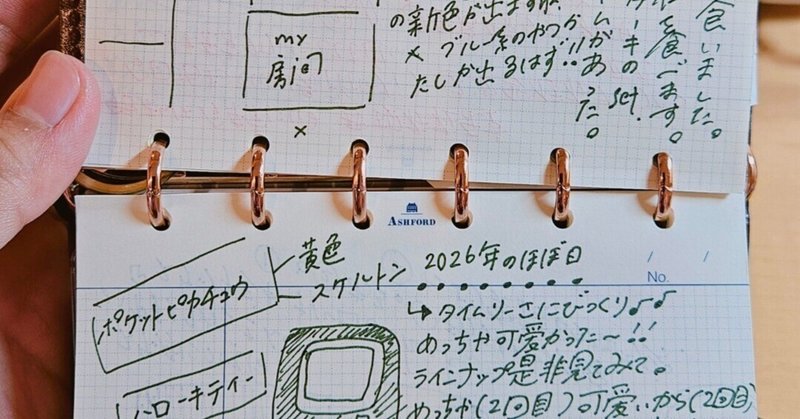 my
房间
×
の新色が出ます
× ブルー系のやつか
たしか出るはず!!
があった。
set.
食いました。
を食べます。
ASHFORD
No.
/ /
黄色
スケルトン
ポケットピカチュウ
ハローキティー
2026年のほぼ日
↳タイムリーさにびっくり♪♪
めっちゃ可愛かった〜!!
ラインナップ是非見てみて。
めっちゃ(2回目)可愛いから(2回目)